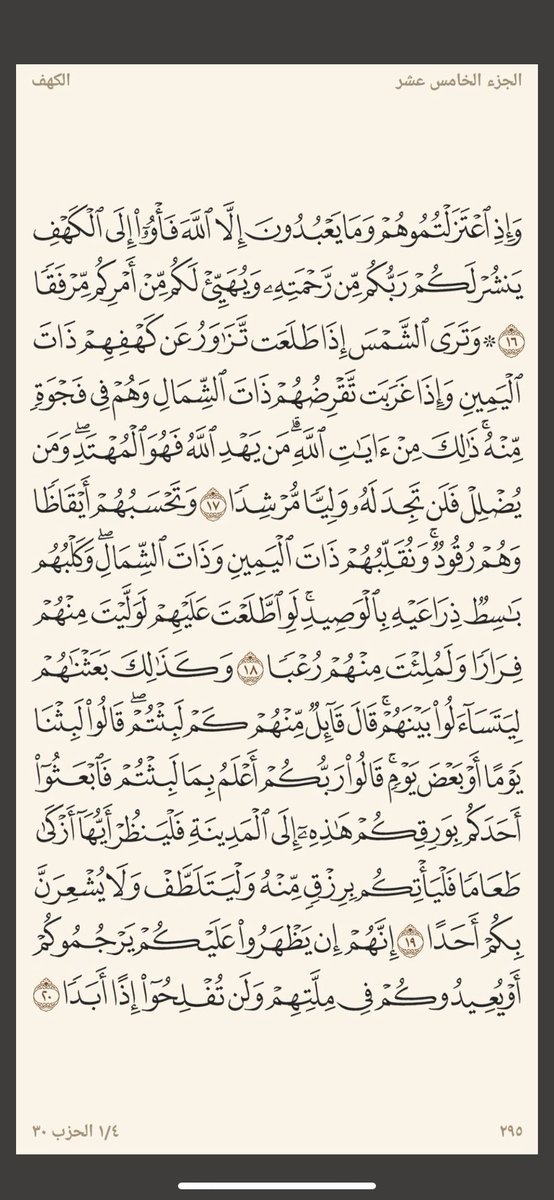 الجزء الخامس عشر الكهف
وَإِذِ ٱعۡتَزَلۡتُمُوهُمۡ وَمَا يَعۡبُدُونَ إِلَّا ٱللَّهَ فَأۡوُۥٓاْ إِلَى ٱلۡكَهۡفِ
يَنشُرۡ لَكُمۡ رَبُّكُم مِّن رَّحۡمَتِهِۦ وَيُهَيِّئۡ لَكُم مِّنۡ أَمۡرِكُم مِّرۡفَقٗا
١٦ ۞ وَتَرَى ٱلشَّمۡسَ إِذَا طَلَعَت تَّزَٰوَرُ عَن كَهۡفِهِمۡ ذَاتَ
ٱلۡيَمِينِ وَإِذَا غَرَبَت تَّقۡرِضُهُمۡ ذَاتَ ٱلشِّمَالِ وَهُمۡ فِي فَجۡوَةٖ
مِّنۡهُۚ ذَٰلِكَ مِنۡ ءَايَٰتِ ٱللَّهِۗ مَن يَهۡدِ ٱللَّهُ فَهُوَ ٱلۡمُهۡتَدِۖ وَمَن
يُضۡلِلۡ فَلَن تَجِدَ لَهُۥ وَلِيّٗا مُّرۡشِدٗا ١٧ وَتَحۡسَبُهُمۡ أَيۡقَاظٗا
وَهُمۡ رُقُودٞۚ وَنُقَلِّبُهُمۡ ذَاتَ ٱلۡيَمِينِ وَذَاتَ ٱلشِّمَالِۖ وَكَلۡبُهُم
بَٰسِطٞ ذِرَاعَيۡهِ بِٱلۡوَصِيدِۚ لَوِ ٱطَّلَعۡتَ عَلَيۡهِمۡ لَوَلَّيۡتَ مِنۡهُمۡ
فِرَارٗا وَلَمُلِئۡتَ مِنۡهُمۡ رُعۡبٗا ١٨ وَكَذَٰلِكَ بَعَثۡنَٰهُمۡ
لِيَتَسَآءَلُواْ بَيۡنَهُمۡۚ قَالَ قَآئِلٞ مِّنۡهُمۡ كَمۡ لَبِثۡتُمۡۖ قَالُواْ لَبِثۡنَا
يَوۡمًا أَوۡ بَعۡضَ يَوۡمٖۚ قَالُواْ رَبُّكُمۡ أَعۡلَمُ بِمَا لَبِثۡتُمۡ فَٱبۡعَثُوٓاْ
أَحَدَكُم بِوَرِقِكُمۡ هَٰذِهِۦٓ إِلَى ٱلۡمَدِينَةِ فَلۡيَنظُرۡ أَيُّهَآ أَزۡكَىٰ
طَعَامٗا فَلۡيَأۡتِكُم بِرِزۡقٖ مِّنۡهُ وَلۡيَتَلَطَّفۡ وَلَا يُشۡعِرَنَّ
بِكُمۡ أَحَدًا ١٩ إِنَّهُمۡ إِن يَظۡهَرُواْ عَلَيۡكُمۡ يَرۡجُمُوكُمۡ
أَوۡ يُعِيدُوكُمۡ فِي مِلَّتِهِمۡ وَلَن تُفۡلِحُوٓاْ إِذًا أَبَدٗا ٢٠
٢٩٥ ١/٤ الحزب ٣٠